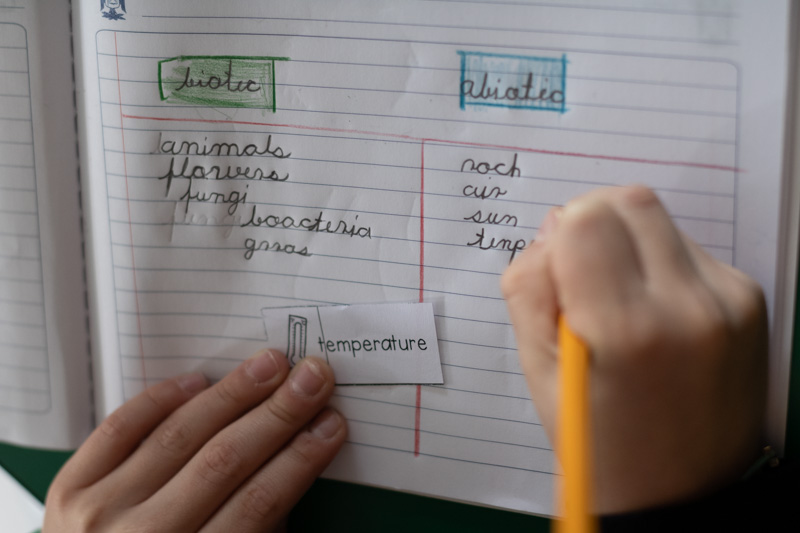 biotic
abiotic
animals
flowers
fungi
boacteria
grsas
roch
air
sun
temp
temperature